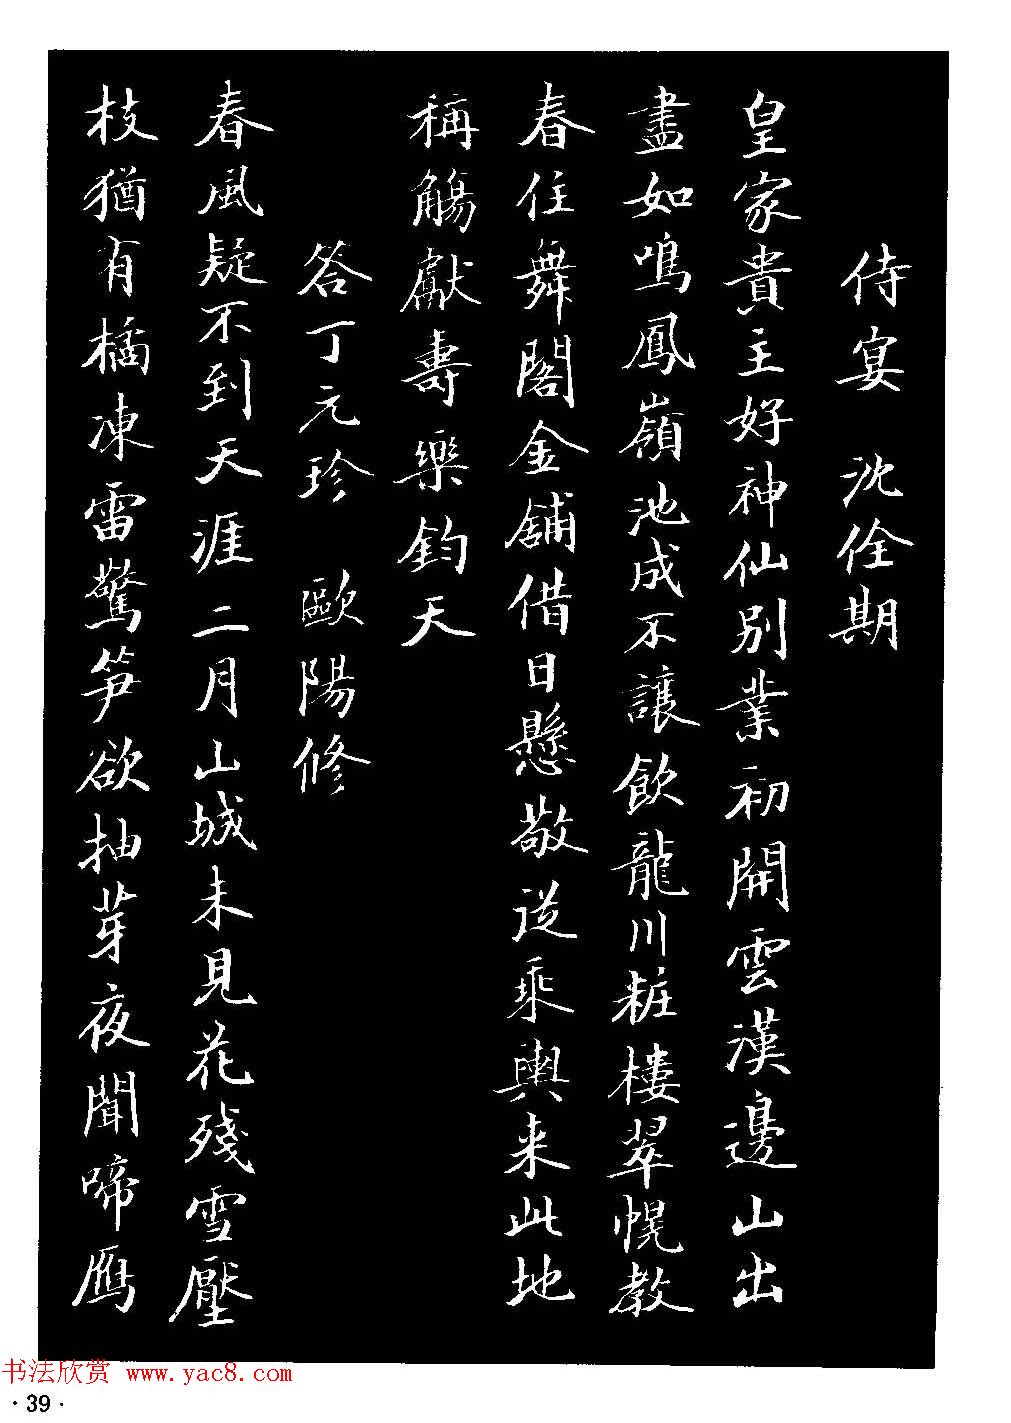 侍宴 沈佺期
皇家貴主好神仙別業初開雲漢邊山出
盡如鳴鳳嶺池成不讓飲龍川粧樓翠幌教
春住舞閣金舖借日懸敬從乘輿来此地
稱觴獻壽樂鈞天
答丁元珍 歐陽修
春風疑不到天涯二月山城未見花殘雪壓
枝猶有橘凍雷驚笋欲抽芽夜聞啼鴈
书法欣赏 www.yac8.com
·39·